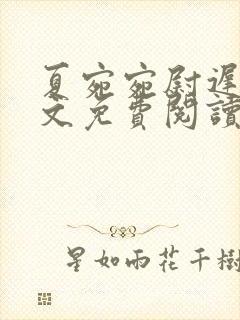 夏宛宛尉遲
文免費閱讀
星如雨花千樹